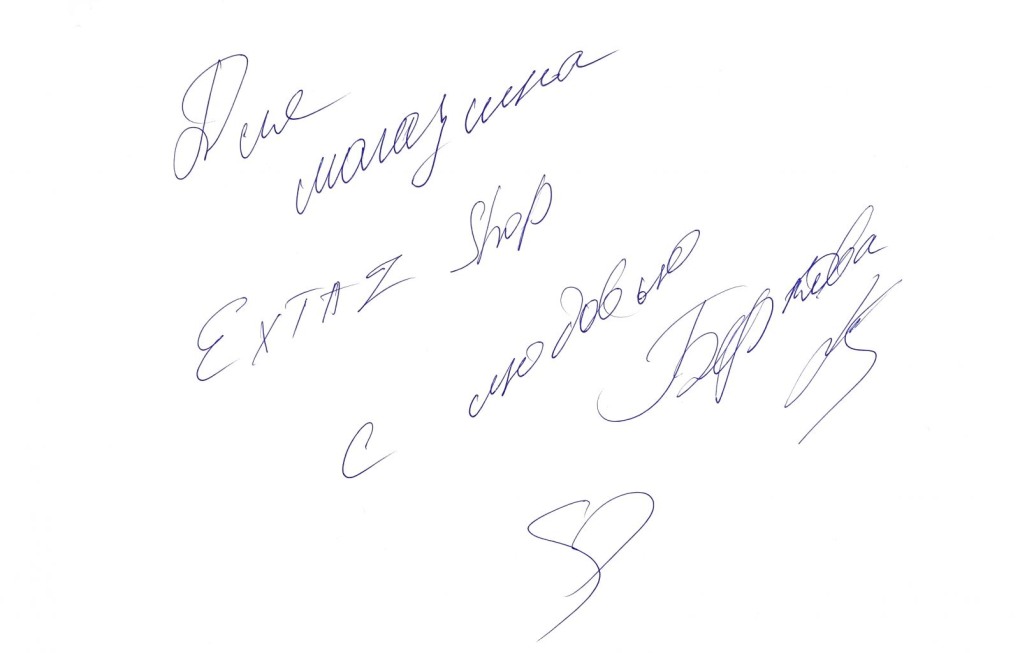 Для
магазина
EXTAZ Shop
С любовью